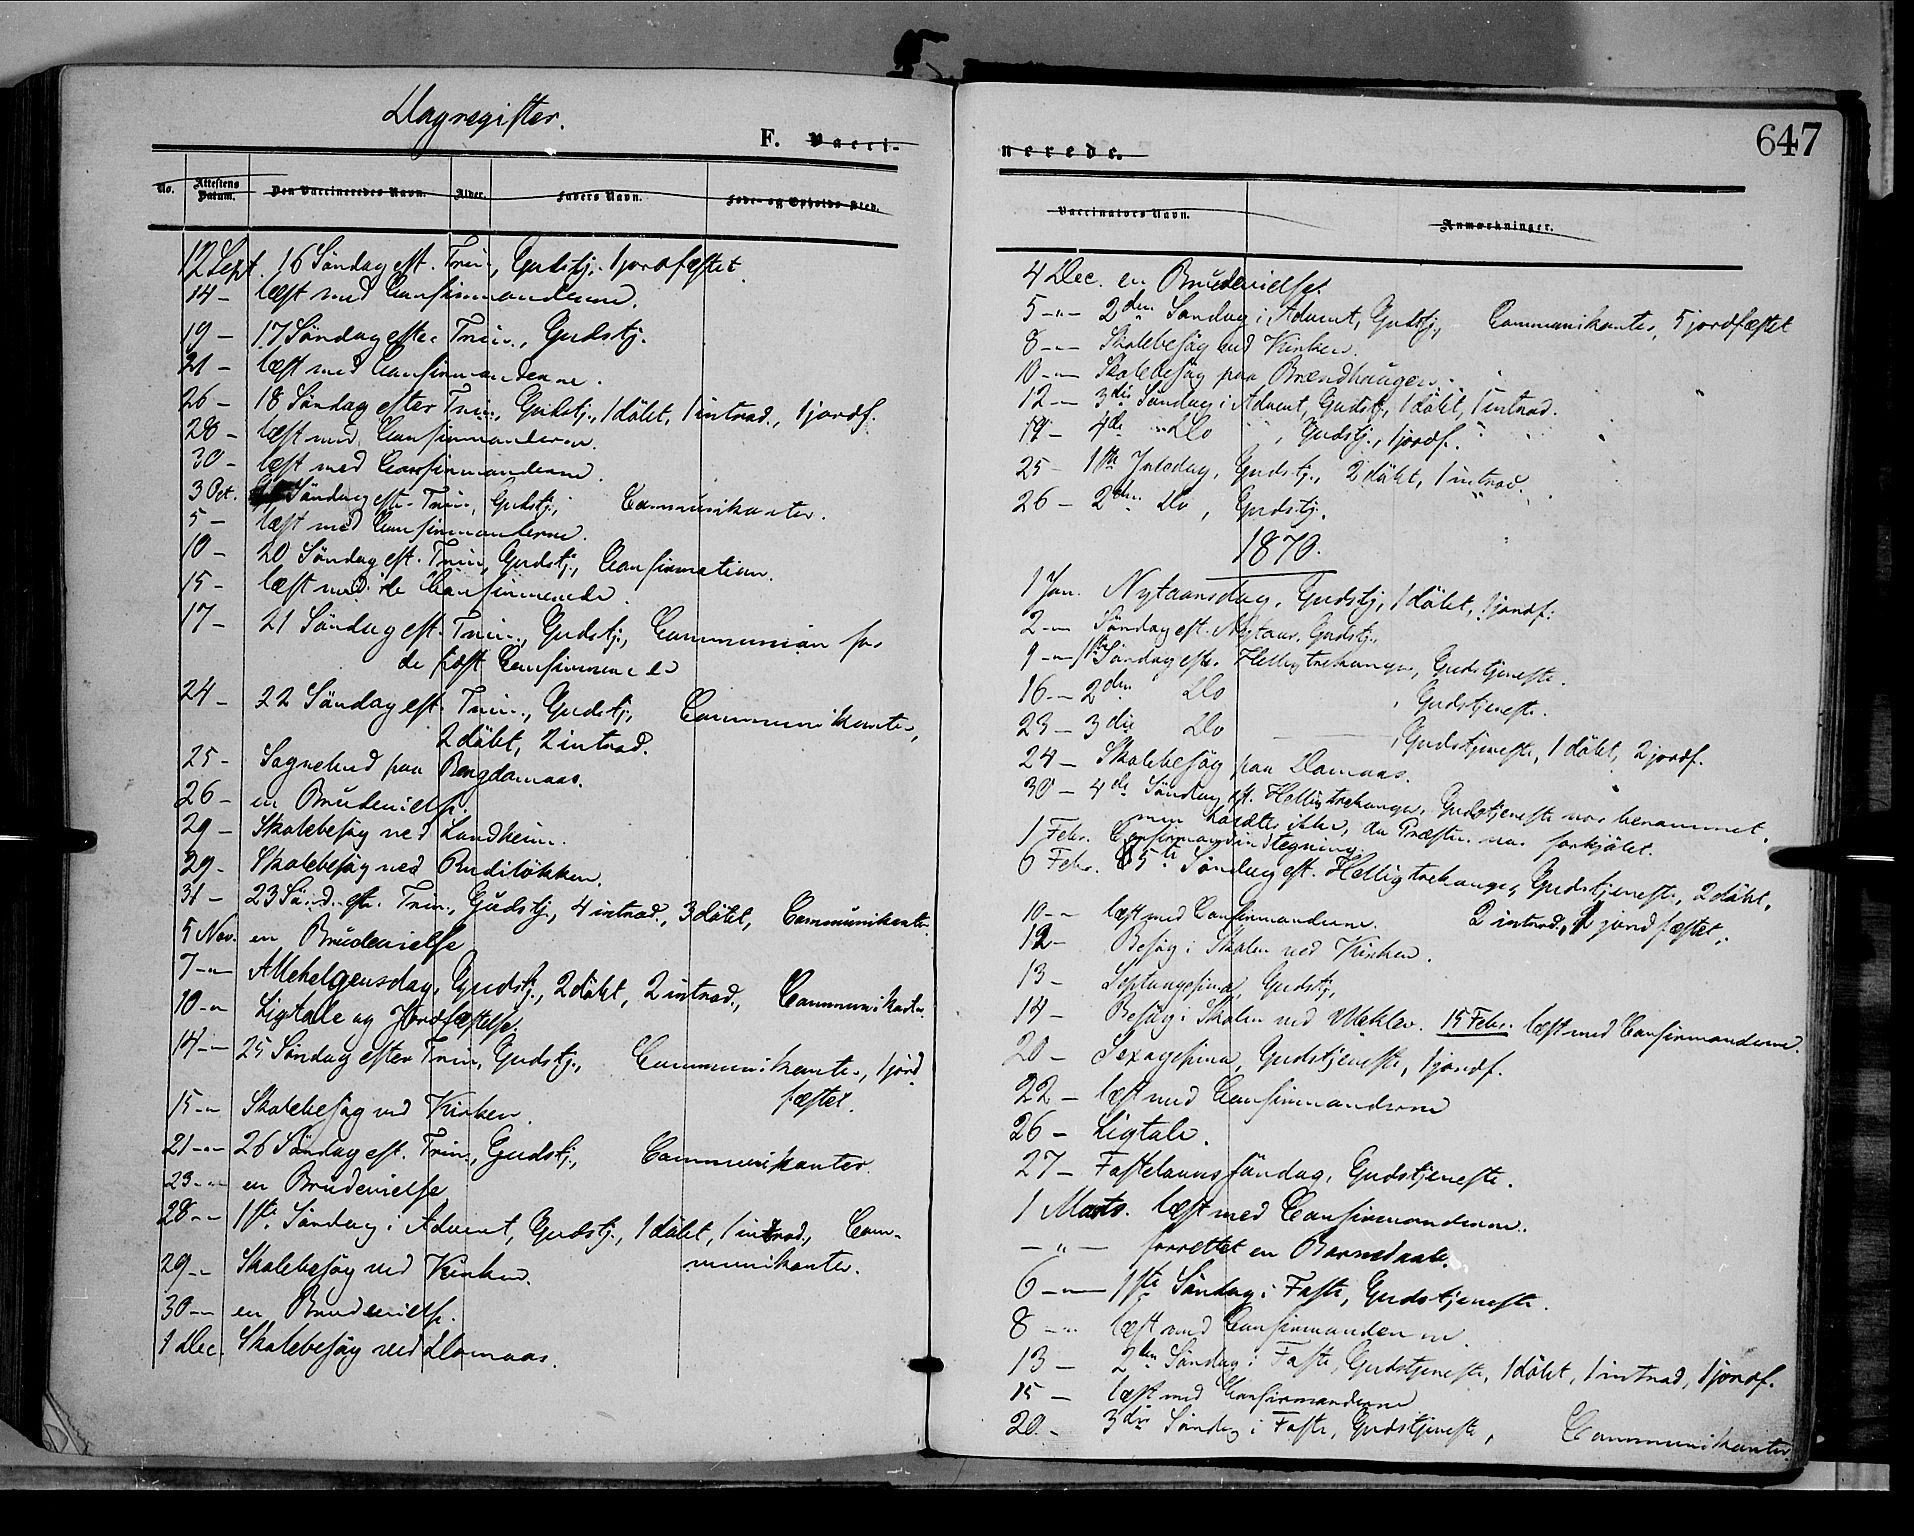 Dagregister.
F. Vacci-
No.
Attestens Datum.
Den Vaccineredes Navn.
Alder.
Faders Navn.
Føde- og Opholds-Sted.
12 Sept. 16 Söndag eft. Trin., Gudstj. 1 jordfæstet.
14 - læst med Confirmanderne.
19 - 17 Söndag efter Trin., Gudstj.
21 - læst med Confirmanderne.
26 - 18 Söndag efter Trin., Gudstj., 1 döbt, 1 introd., 1 jordf.
28 - læst med Confirmanderne.
30 - læst med Confirmanderne.
3 Oct. Söndag eft. Trin., Gudstj., Communikanter.
5 - læst med Confirmanderne.
10 - 20 Söndag eft. Trin., Gudstj., Confirmation.
15 - læst med de Confirmerede.
17 - 21 Söndag eft. Trin., Gudstj., Communion for
de Confirmerede
24 - 22 Söndag eft. Trin., Gudstj., Communikanter,
2 döbt, 2 introd.
25 - Sognebud paa
26 - en Brudevielse.
29 - Skolebesög ved Landheim.
29 - Skolebesög ved Rudilökken.
31 - 23 Sönd. eft. Trin., Gudstj., 4 introd., 3 döbt, Communikanter.
5 Nov. en Brudevielse
7 -"- Allehelgensdag, Gudstj., 2 döbt, 2 introd., Communikanter.
10 -"- Ligtale og Jordfæstelse.
14 -"- 25 Söndag efter Trin., Gudstj., Communikanter, 1 jord
fæstet.
15 -"- Skolebesög ved Kirken.
21 -"- 26 Söndag eft. Trin., Gudstj., Communikanter.
23 -"- en Brudevielse
28 -"- 1ste Söndag i Advent, Gudstj., 1 döbt, 1 introd., Com-
munikanter.
29 -"- Skolebesög ved Kirken.
30 -"- en Brudevielse.
1 Dec. Skolebesög ved Domaas.
nerede.
647
Vaccinators Navn.
Anmerkninger.
4 Dec. en Brudevielse.
5 -"- 2den Söndag i Advent, Gudstj., Communikanter, 5 jordfæstet
8 -"- Skolebesög ved Kirken.
10 -"- Skolebesög paa Brændhaugen.
12 -"- 3die Söndag i Advent, Gudstj., 1 döbt, 1 introd.
19 - 4de Do, Gudstj., 1 jordf.
25 - 1ste Juledag, Gudstj., 2 döbt, 1 introd.
26 - 2den Do, Gudstj.
1870.
1 Jan. Nytaarsdag, Gudstj., 1 döbt, 1 jordf.
2 -"- Söndag eft. Nytaar, Gudstj.
9 -"- 1ste Söndag efter Helligtrekonger, Gudstjeneste.
16 -"- 2den Do, Gudstjeneste.
23 - 3die Do, Gudstjeneste, 1 döbt, 2 jordf.
24 - Skolebesög paa Domaas.
30 - 4de Söndag eft. Helligtrekonger, Gudstjeneste var berammet,
men holdtes ikke, da Præsten var forkjölet.
1 Febr. Confirmandindtegning.
6 Febr. 5te Söndag eft. Helligtrekonger, Gudstjeneste, 2 döbt,
2 introd., 1 jordfæstet.
10 -"- læst med Confirmanderne.
12 - Besög i Skolen ved Kirken.
13 - Septuagesima, Gudstj.,
14 - Besög i Skolen ved Uleklev. 15 Febr. læst med Confirmanderne.
20 - Sexagesima, Gudstjeneste, 1 jordf.
22 - læst med Confirmanderne
26 - Ligtale.
27 - Fastelavnssöndag, Gudstjeneste.
1 Marts. læst med Confirmanderne.
-"- forrettet en Barnedaab.
6 -"- 1ste Söndag i Faste, Gudstjeneste.
8 -"- læst med Confirmanderne
13 - 2den Söndag i Faste, Gudstjeneste, 1 döbt, 1 introd, 1 jordf.
15 - læst med Confirmanderne
20 - 3die Söndag i Faste, Gudstjeneste, Communikanter.